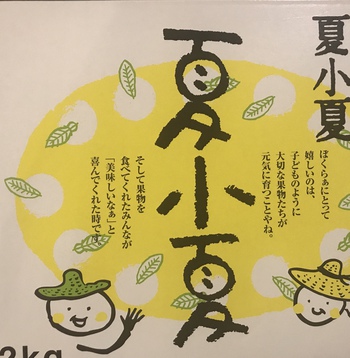 夏小夏
夏小夏
ぼくらぁにとって
嬉しいのは、
子どものように
大切な果物たちが
元気に育つことやね。
そして果物を
食べてくれたみんなが
「美味しいなぁ」と
喜んでくれた時です。
2kg